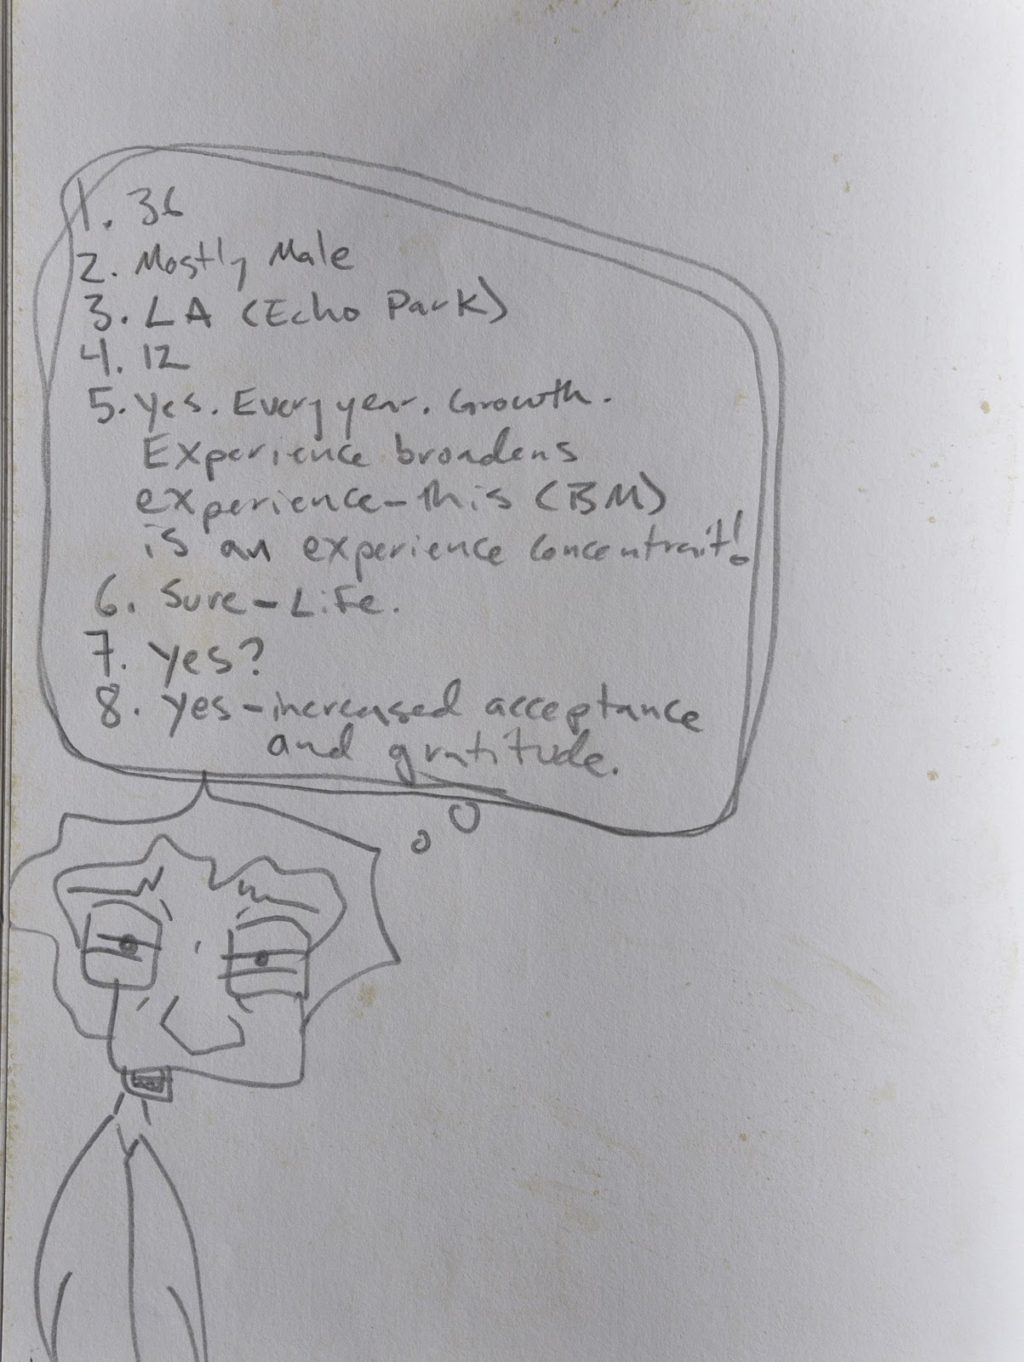 1. 36
2. Mostly Male
3. LA (Echo Park)
4. 12
5. Yes. Every year. Growth.
Experience broadens
experience - this (BM)
is an experience concentrait!
6. Sure - Life.
7. Yes?
8. Yes - increased acceptance
and gratitude.